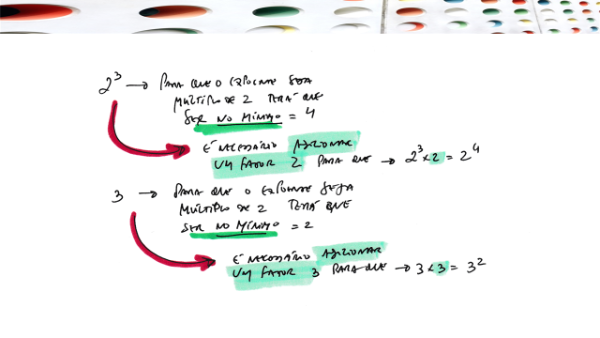 2³ → PARA QUE O EXPOENTE SEJA
MÚLTIPLO DE 2 TERÁ QUE
SER NO MÍNIMO = 4
É NECESSÁRIO ADICIONAR
UM FATOR 2 PARA QUE → 2³ × 2 = 2⁴
3 → PARA QUE O EXPOENTE SEJA
MÚLTIPLO DE 2 TERÁ QUE
SER NO MÍNIMO = 2
É NECESSÁRIO ADICIONAR
UM FATOR 3 PARA QUE → 3 × 3 = 3²